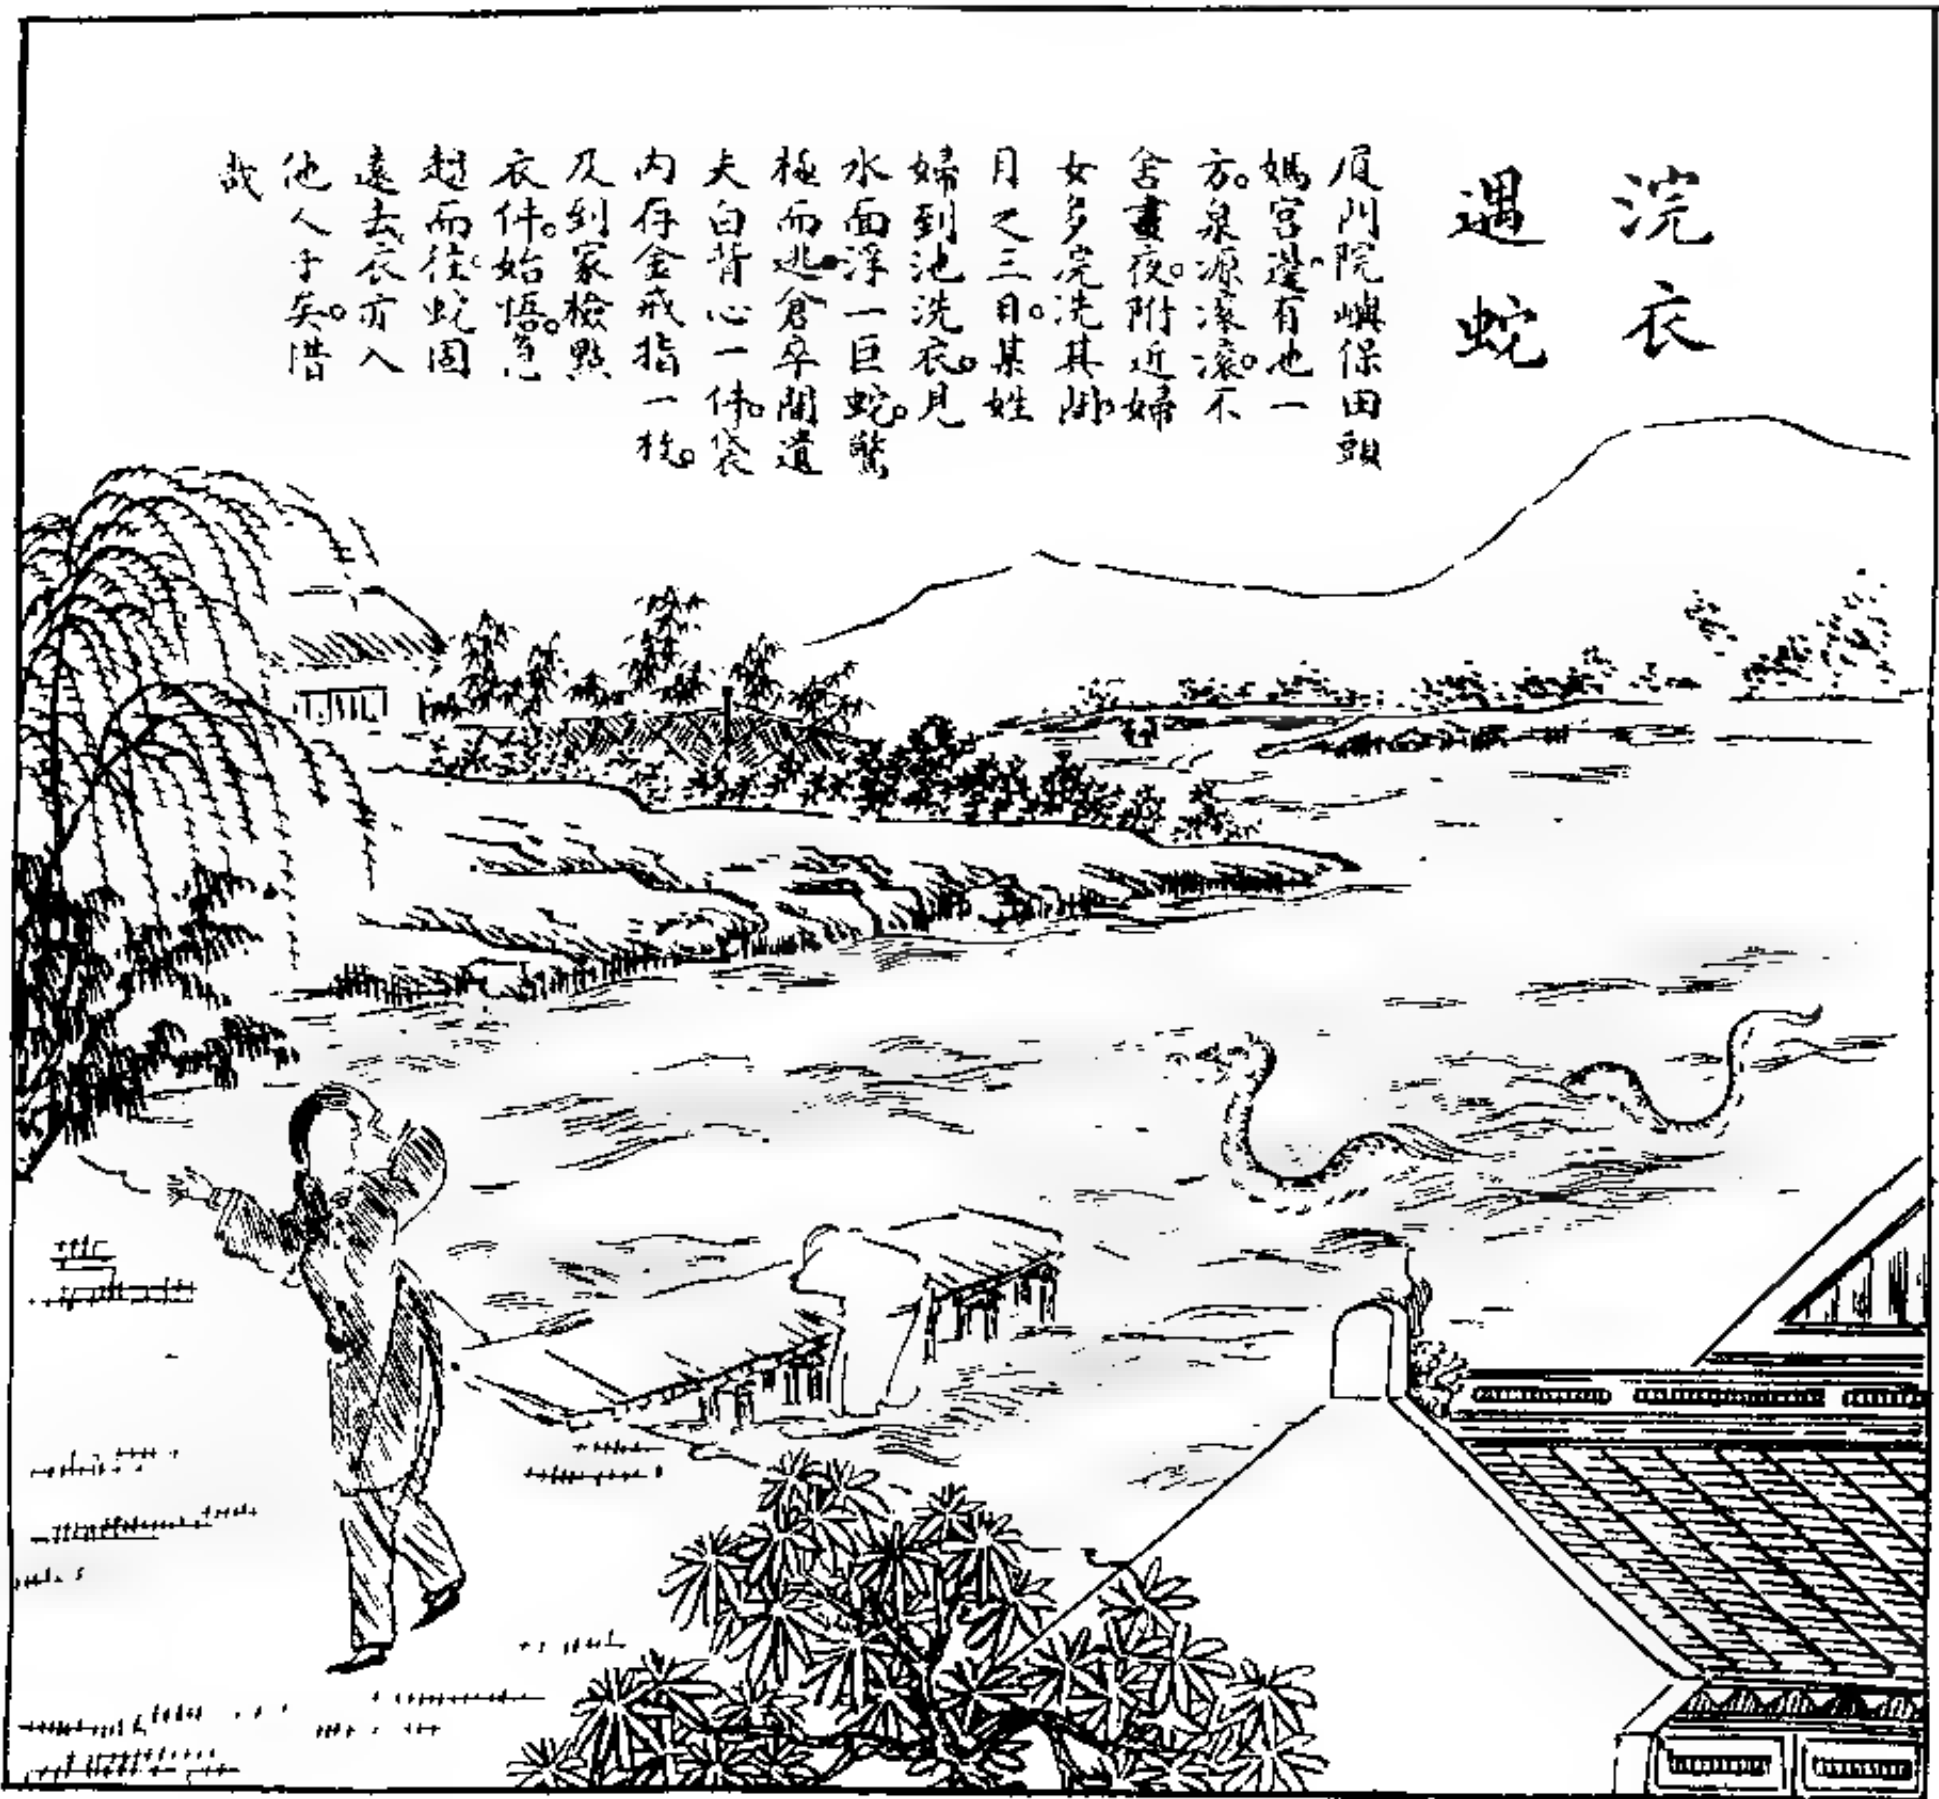 浣衣
遇蛇
厦門院嶼保田頭
媽宮邊有也一
方。泉源滾滾。不
舍晝夜。附近婦
女多浣洗其間
月之三日。某姓
婦到池洗衣。見
水面浮一巨蛇。驚
極而逃。倉卒間遺
夫白背心一件。袋
内存金戒指一枝。
及到家檢點
衣件。始悟。急
趨而往。蛇固
遠去衣亦入
他人手矣。惜
哉